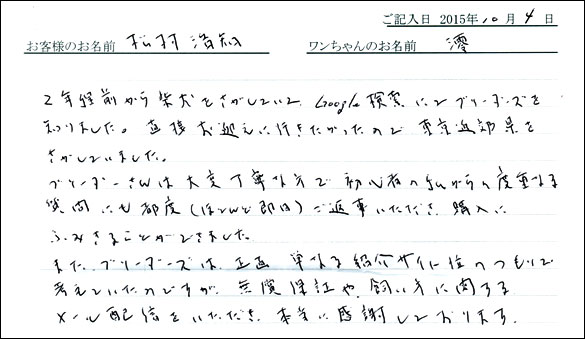 ご記入日 2015年10月4日
お客様のお名前 松村 浩知 ワンちゃんのお名前 澪
2年程前から柴犬をさがしていて、Google検索にてブリーダーズを
知りました。直接お迎えに行きたかったので東京近郊県を
さがしていました。
ブリーダーさんは大変丁寧な方で初心者の私からの度重なる
質問にも都度（ほとんど即日）ご返事いただき、購入に
ふみきることができました。
また、ブリーダーズは、正直、単なる紹介サイト位のつもりで
考えていたのですが、無償保証や、飼い方に関する
メール配信をいただき、本当に感謝しております。